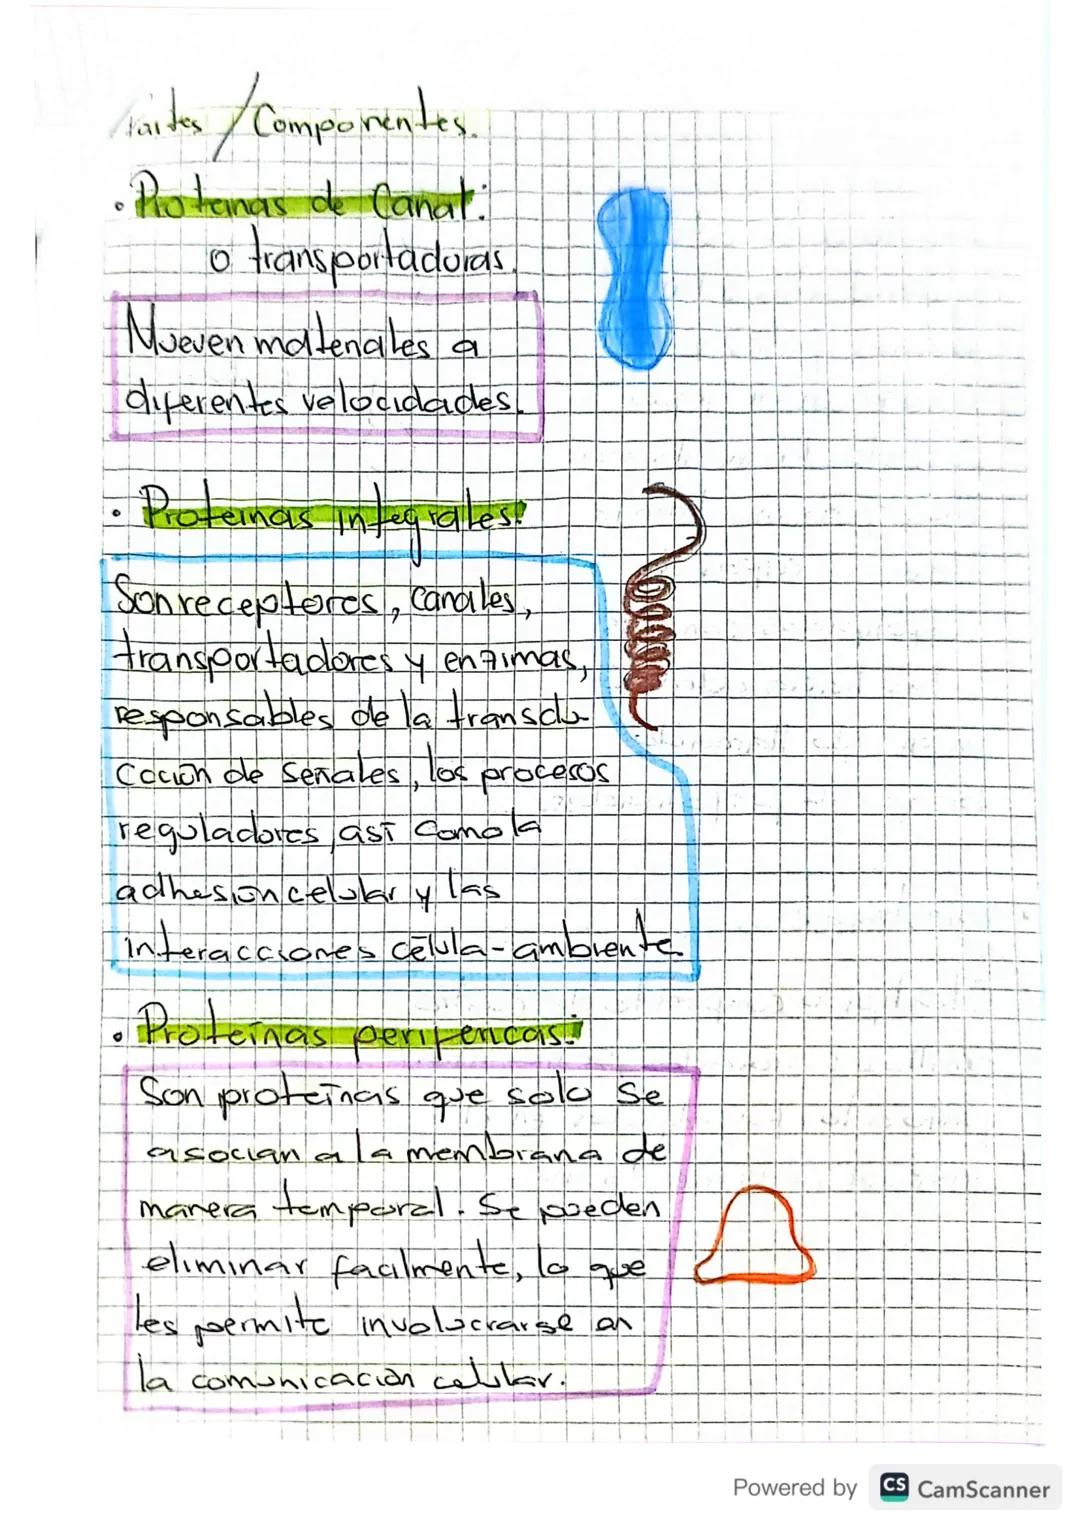 Partes / Componentes.
• Proteinas de Canal:
o transportadoras.
Mueven materiales a
diferentes velocidades.
• Proteinas integrales:
Son receptores, canales,
transportadores y enzimas,
responsables de la transdu-
cción de señales, los procesos
reguladores, así como la
adhesión celular y las
interacciones célula-ambiente.
• Proteínas periféricas:
Son proteínas que solo se
asocian a la membrana de
manera temporal. Se pueden
eliminar facilmente, lo que
les permite involucrarse en
la comunicación celular.
Powered by CS CamScanner